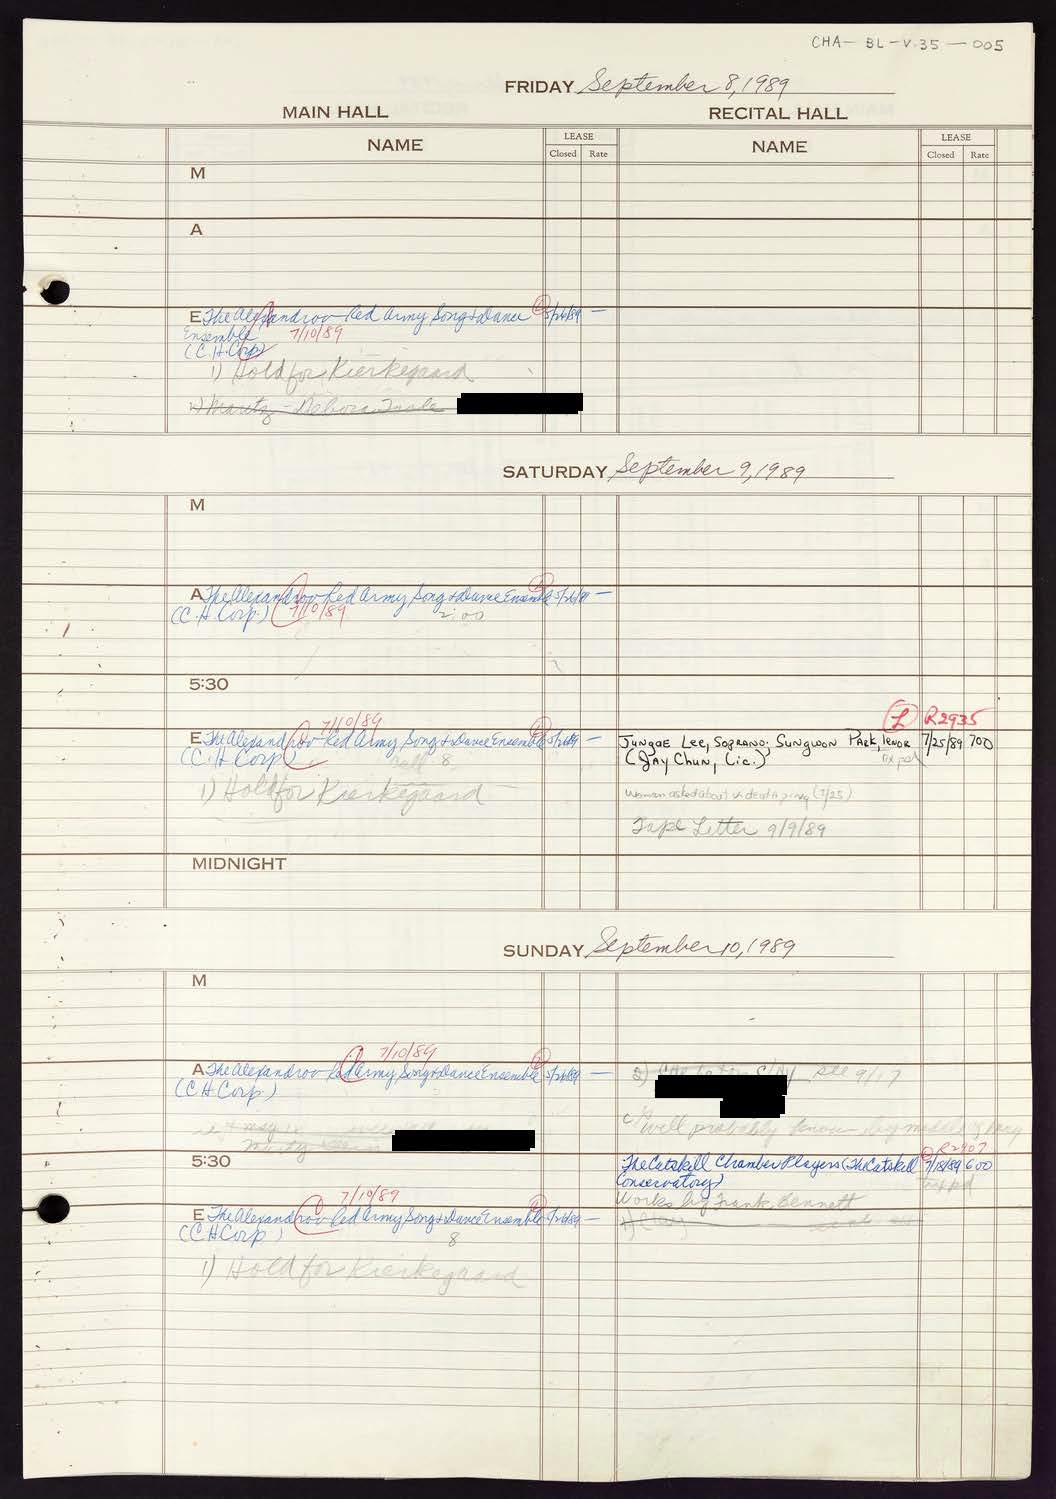 CHA-BL-V.35-005
FRIDAY September 8, 1989
MAIN HALL RECITAL HALL
NAME LEASE NAME LEASE
Closed Rate Closed Rate
M
A
E The Alexandrov Red Army Song & Dance 5/26/89 —
Ensemble 7/10/89
(C.H. Corp)
1) Hold for Kierkegaard
2) Maritz - Debora
SATURDAY September 9, 1989
M
A The Alexandrov Red Army Song & Dance Ensemble 5/26/89 —
(C.H. Corp.) 7/10/89 2:00
5:30
7/10/89 L R2935
E The Alexandrov Red Army Song & Dance Ensemble 5/26/89 — Jungae Lee, Soprano; Sungwon Park, Tenor 7/25/89 700
(C.H. Corp) 8 (Jay Chun, Lic.) tix pd
1) Hold for Kierkegaard
Woman asked about videotaping (7/25)
Tape Letter 9/9/89
MIDNIGHT
SUNDAY September 10, 1989
M
7/10/89
A The Alexandrov Red Army Song & Dance Ensemble 5/26/89 — see 9/17
(C.H. Corp)
will probably know by
R2907
5:30 The Catskill Chamber Players (The Catskill 7/18/89 600
Conservatory) tix pd
7/10/89 Works by Frank Bennett
E The Alexandrov Red Army Song & Dance Ensemble 5/26/89 —
(C.H. Corp) 8
1) Hold for Kierkegaard